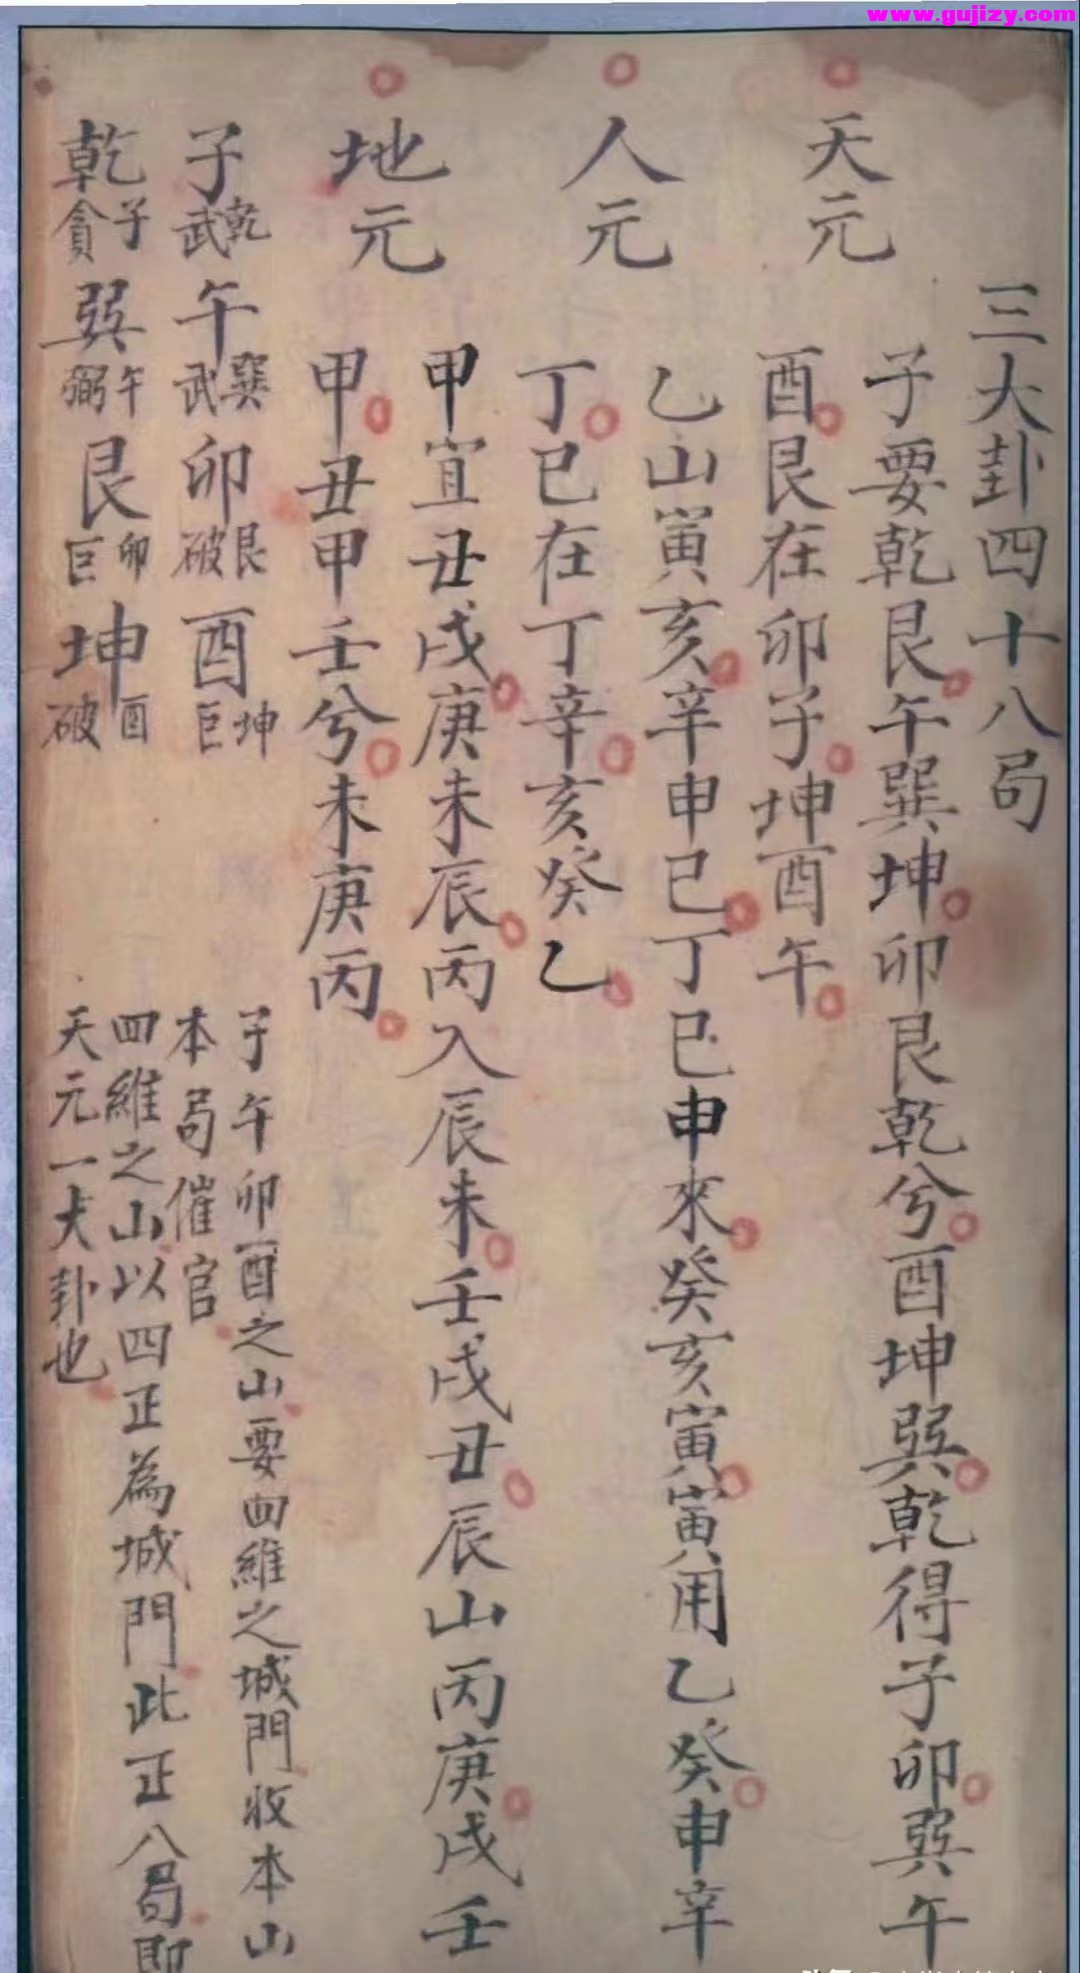 www.gujizy.com
三大卦四十八局
天元
子要乾艮午巽坤卯艮乾兮酉坤巽乾得子卯巽午
酉艮在卯子坤酉午
人元
乙山寅亥辛申巳丁巳申來癸亥寅寅用乙癸申辛
丁巳在丁辛亥癸乙
地元
甲宜丑戌庚未辰丙入辰未壬戌丑辰山丙庚戌壬
甲丑甲壬兮未庚丙
子乾武午巽武卯艮破酉坤巨
乾子貪巽午弼艮卯巨坤酉破
子午卯酉之山要四維之城門收本山
本局催官
四維之山以四正為城門此正八局即
天元一大卦也